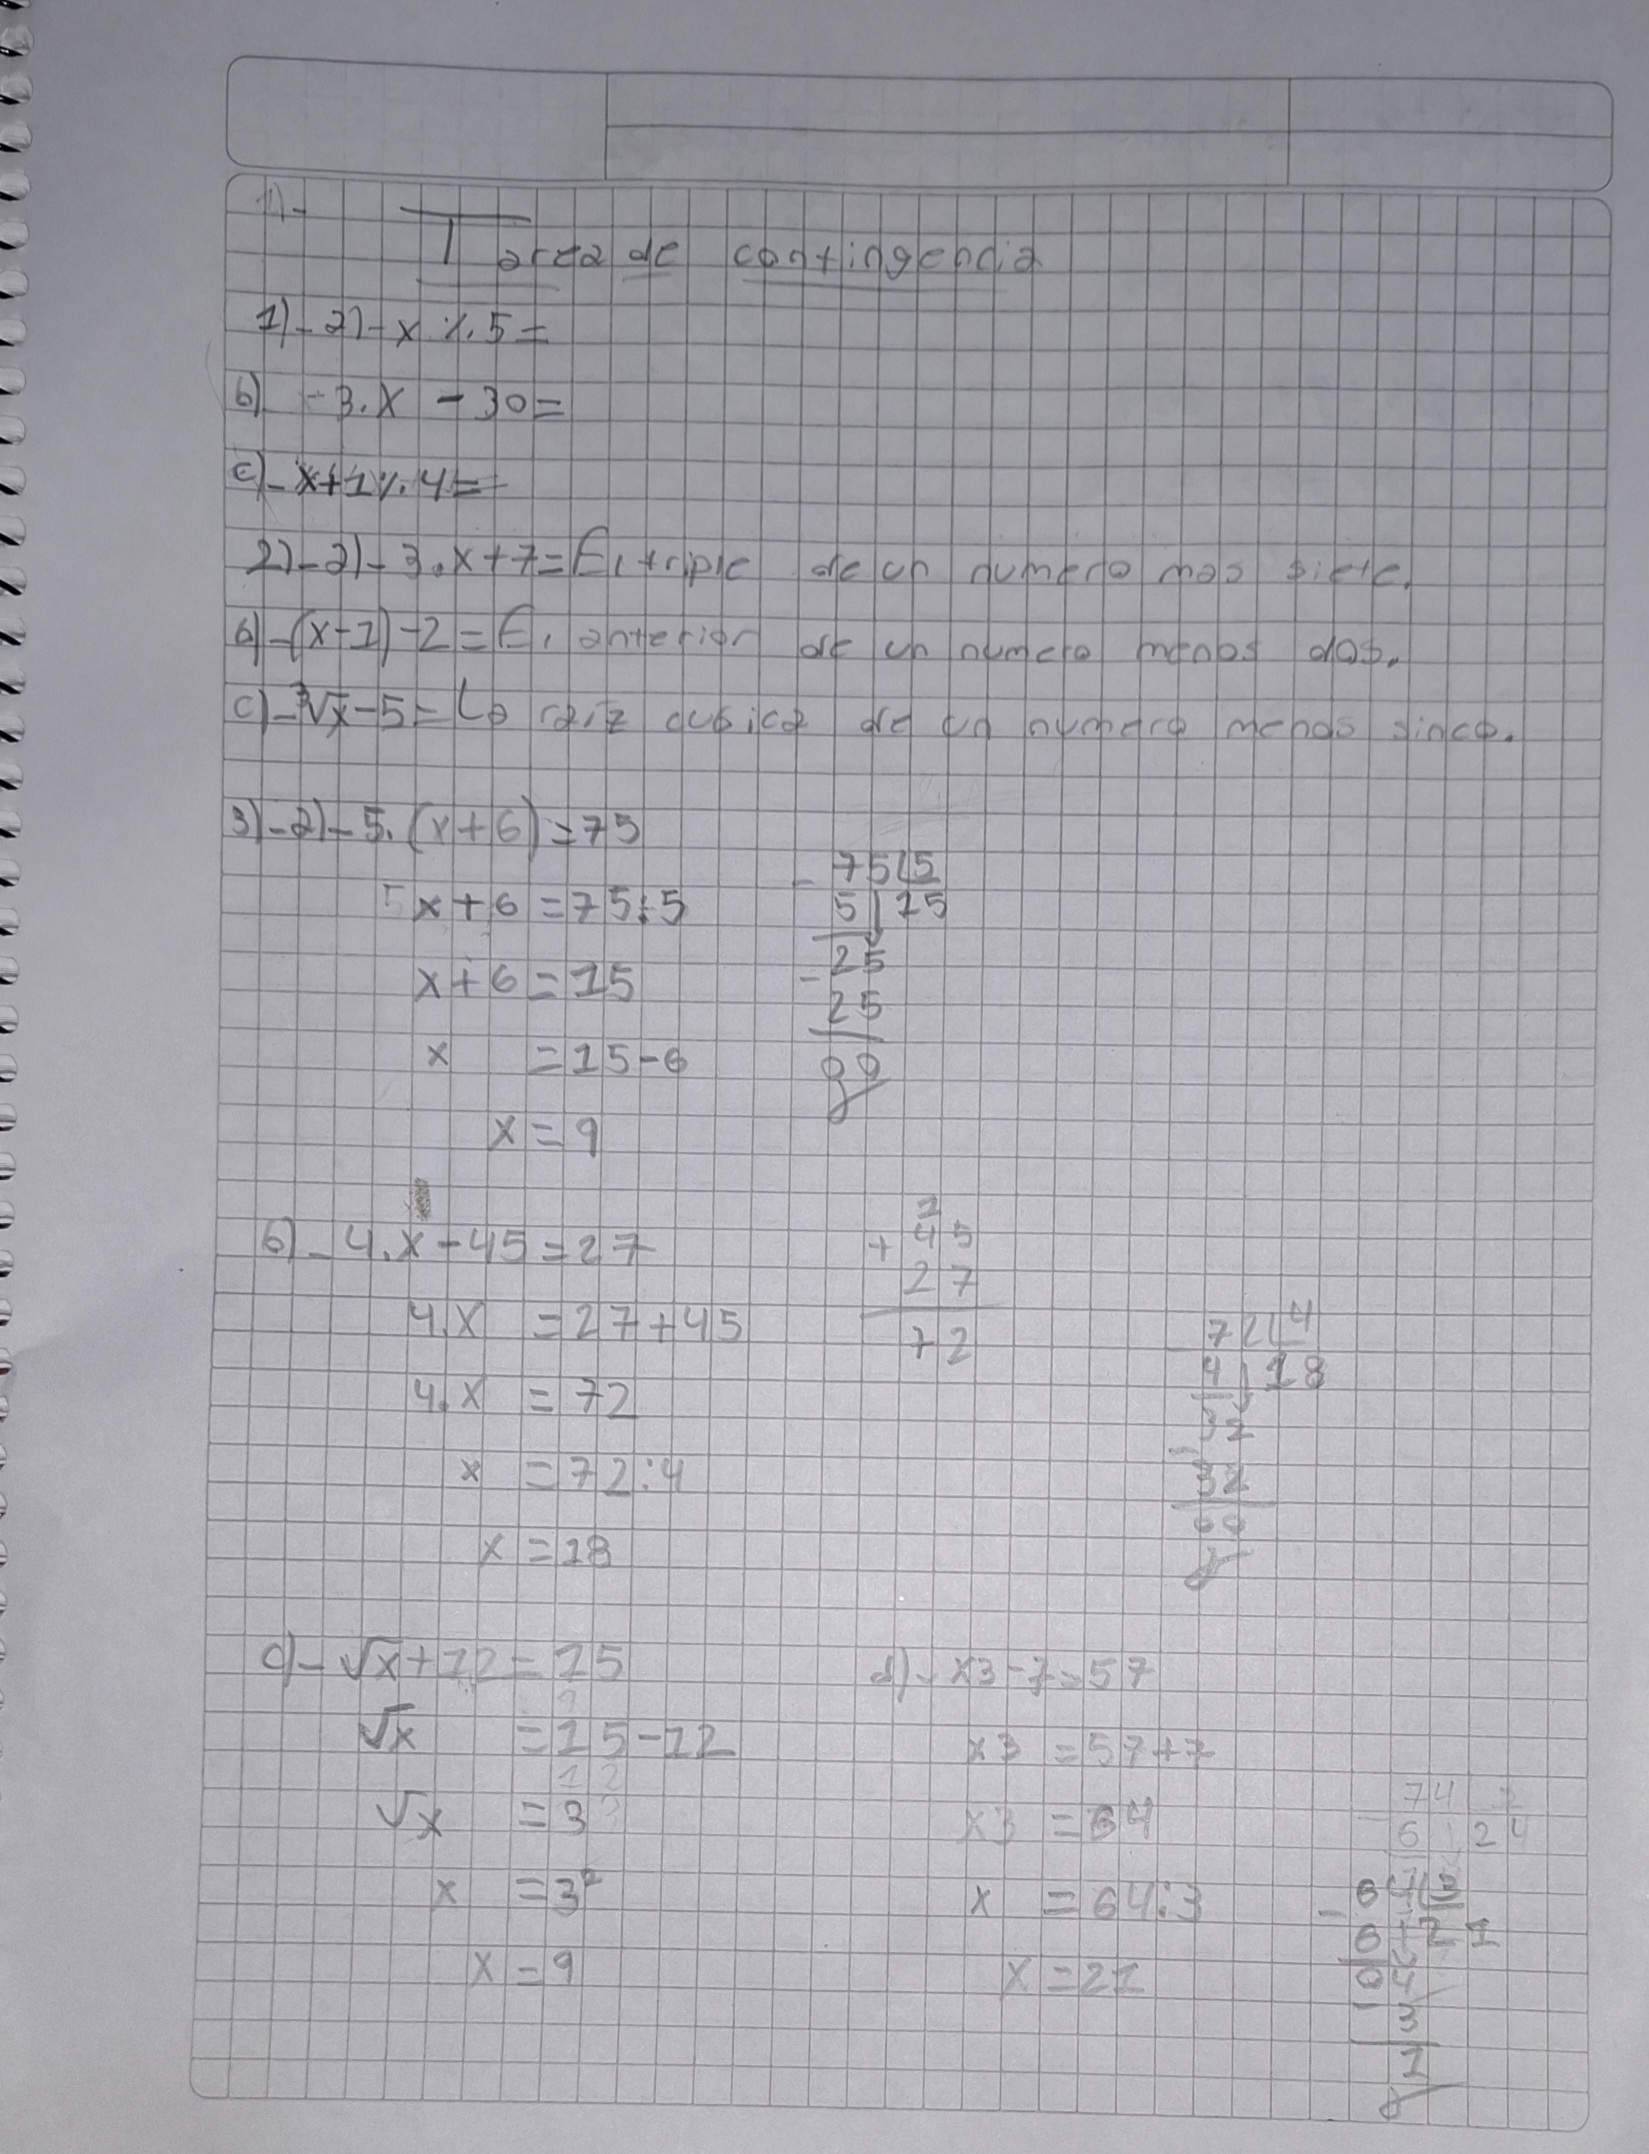 1)-
Tarea de contingencia
1)-a)- x ./. 5 =
b) -3.x - 30=
c)- x+1 ./. 4=
2)-a)- 3.x+7=El triple de un numero mas siete.
b)-(x-1)-2=El anterior de un numero menos dos.
c)-³√x-5=La raiz cubica de un numero menos sinco.
3)-a)-5.(x+6)=75
75 5
5x+6=75:5
5 15
x+6=15
-25
25
x =15-6
00
x=9
b)-4.x-45=27
1
+45
27
4.x =27+45
72
72 4
4 18
4.x =72
32
x =72:4
-32
00
x=18
c)-√x+12=15
d)-x3-7=57
√x =15-12
x3 =57+7
12
74 3
√x =3
x3 =64
-6 24
x =3²
x =64:3
64 3
-6 21
x=9
x=21
04
-3
1